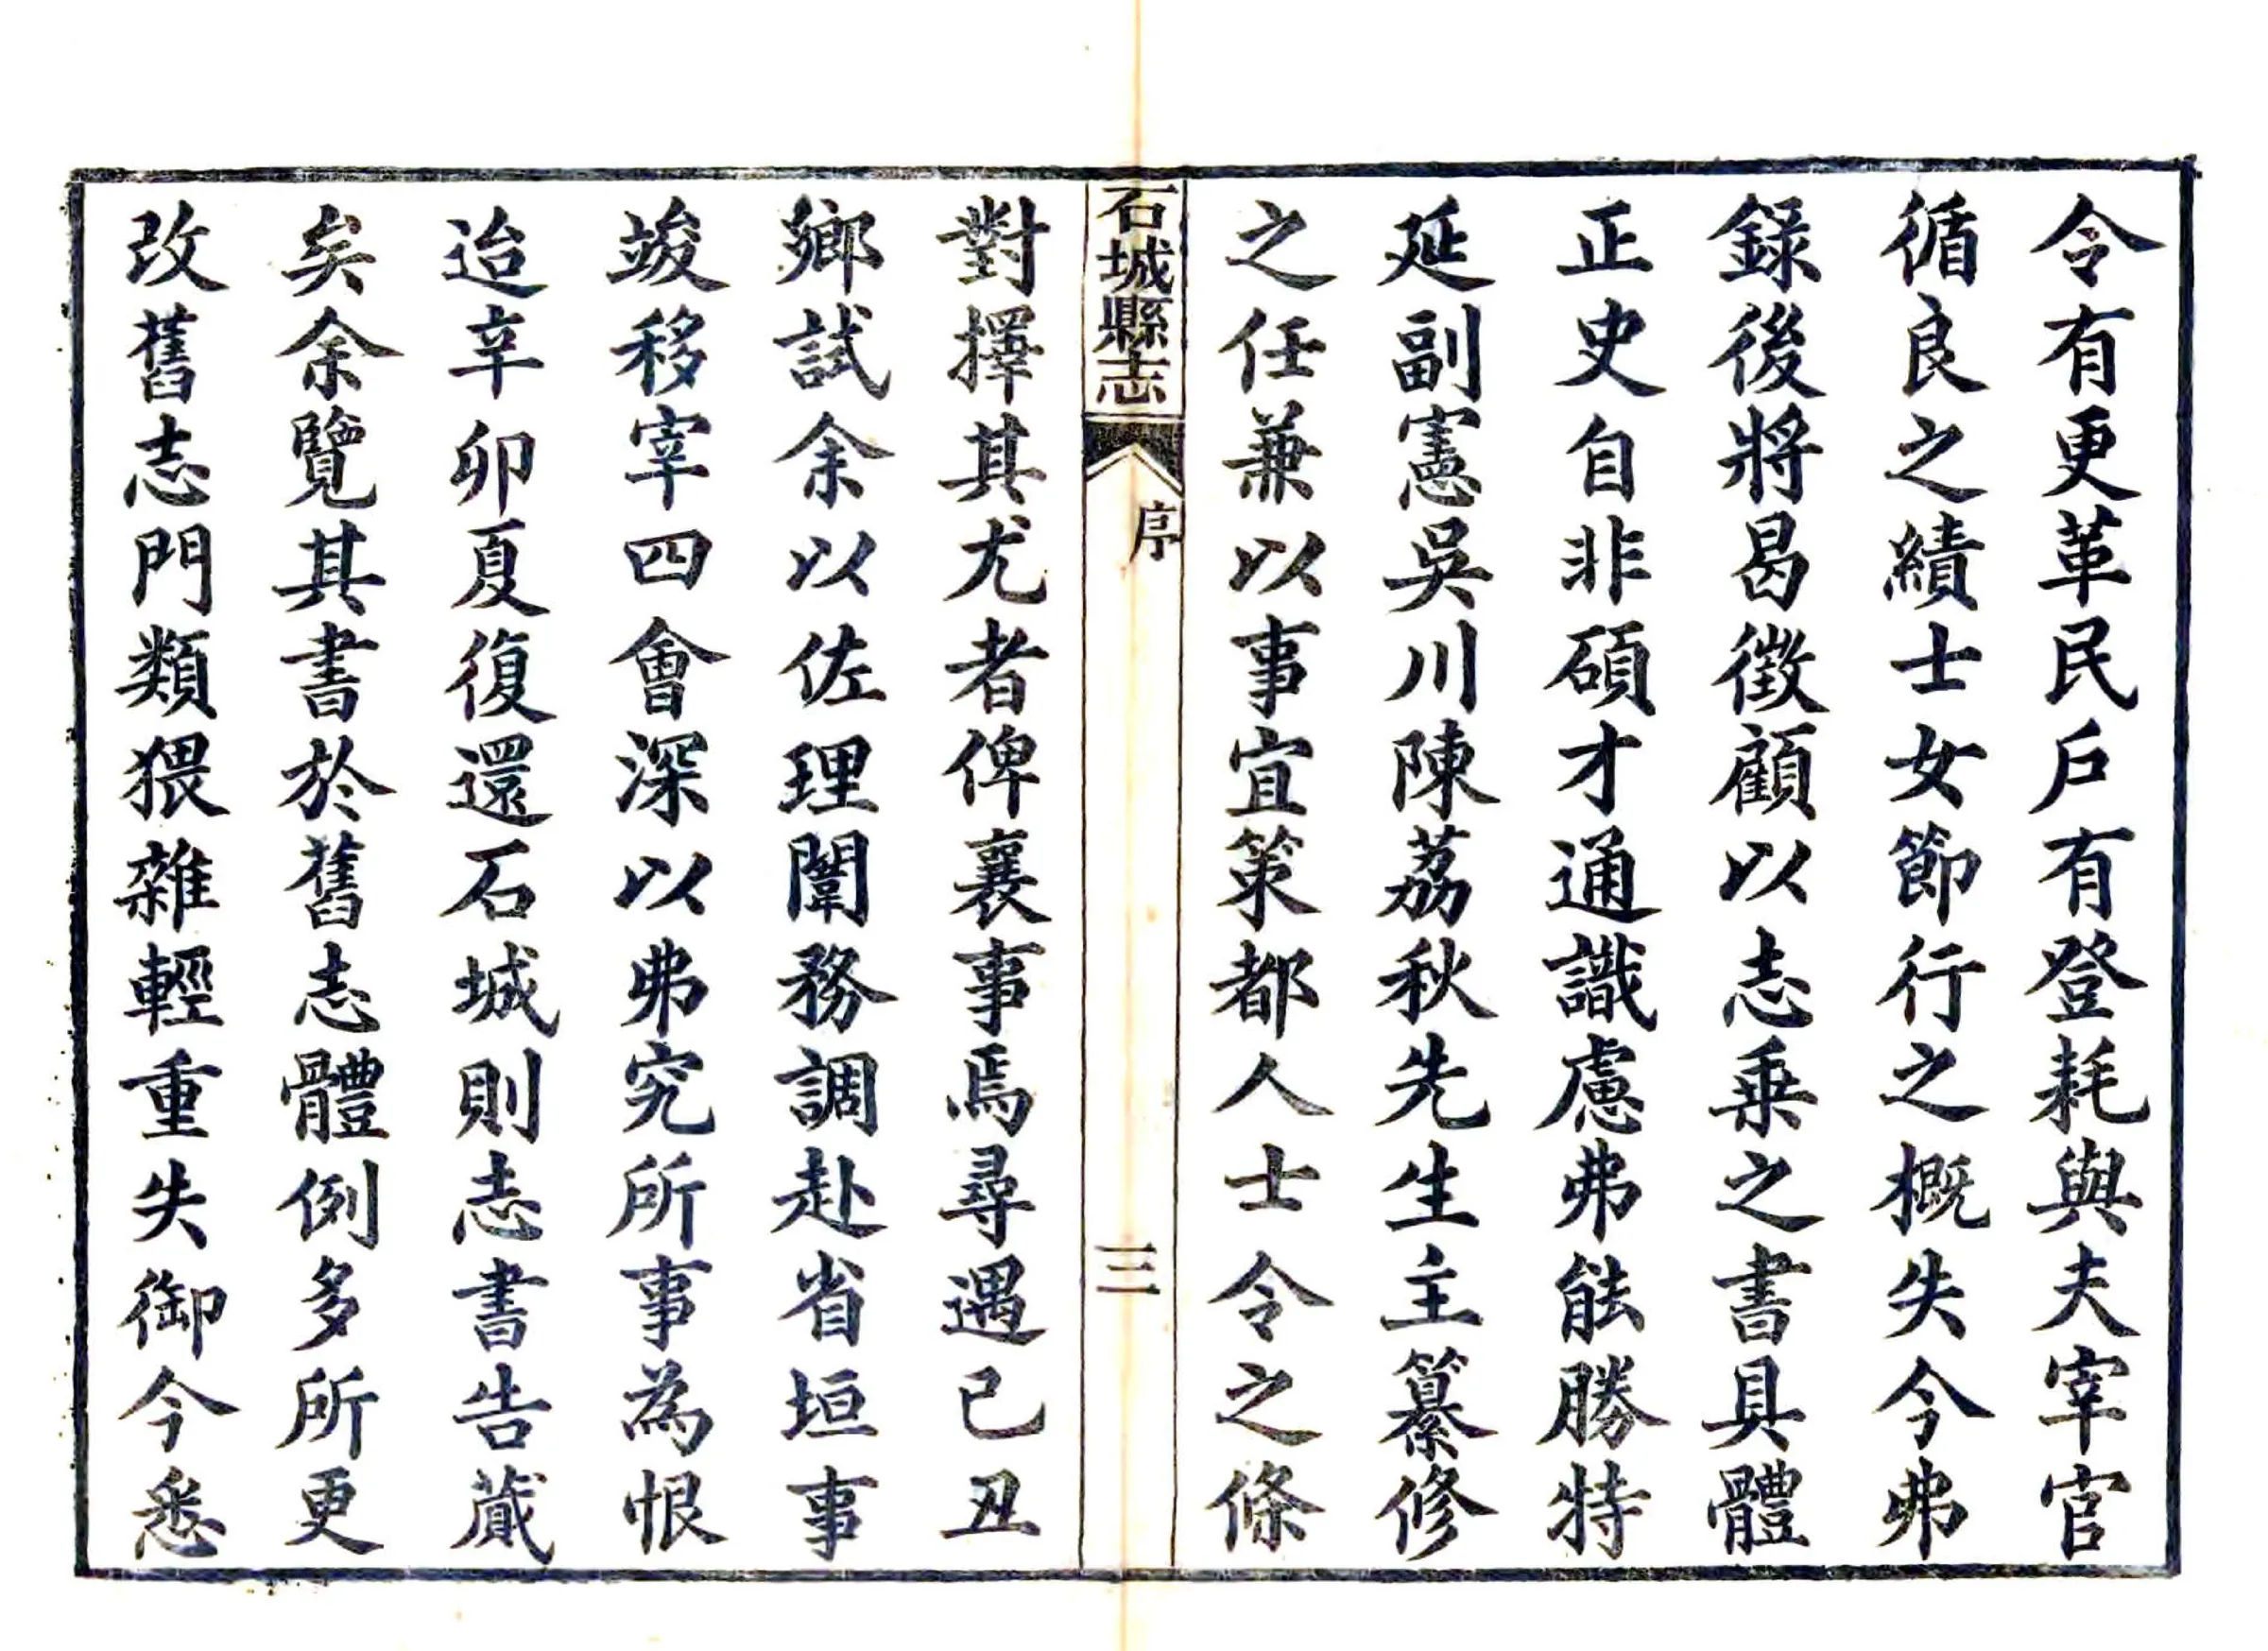 令有更革民戶有登耗與夫宰官
循良之績士女節行之概失今弗
錄後將曷徵顧以志乗之書具體
正史自非碩才通識慮弗能勝特
延副憲吳川陳荔秋先生主纂修
之任兼以事宜策都人士令之條
石城縣志
序
三
對擇其尤者俾襄事焉尋遇已丑
鄉試余以佐理闈務調赴省垣事
竣移宰四會深以弗究所事為恨
迨辛卯夏復還石城則志書告蕆
矣余覽其書於舊志體例多所更
改舊志門類猥雜輕重失御今悉